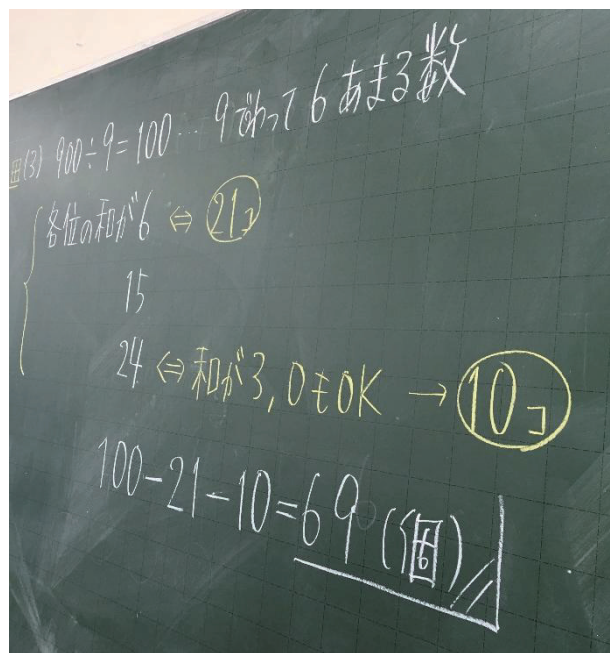 (3) 900÷9=100 … 9でわって6あまる数
各位の和が6 ⇔ 21コ
15
24 ⇔ 和が3,0もOK → 10コ
100-21-10=69(個)